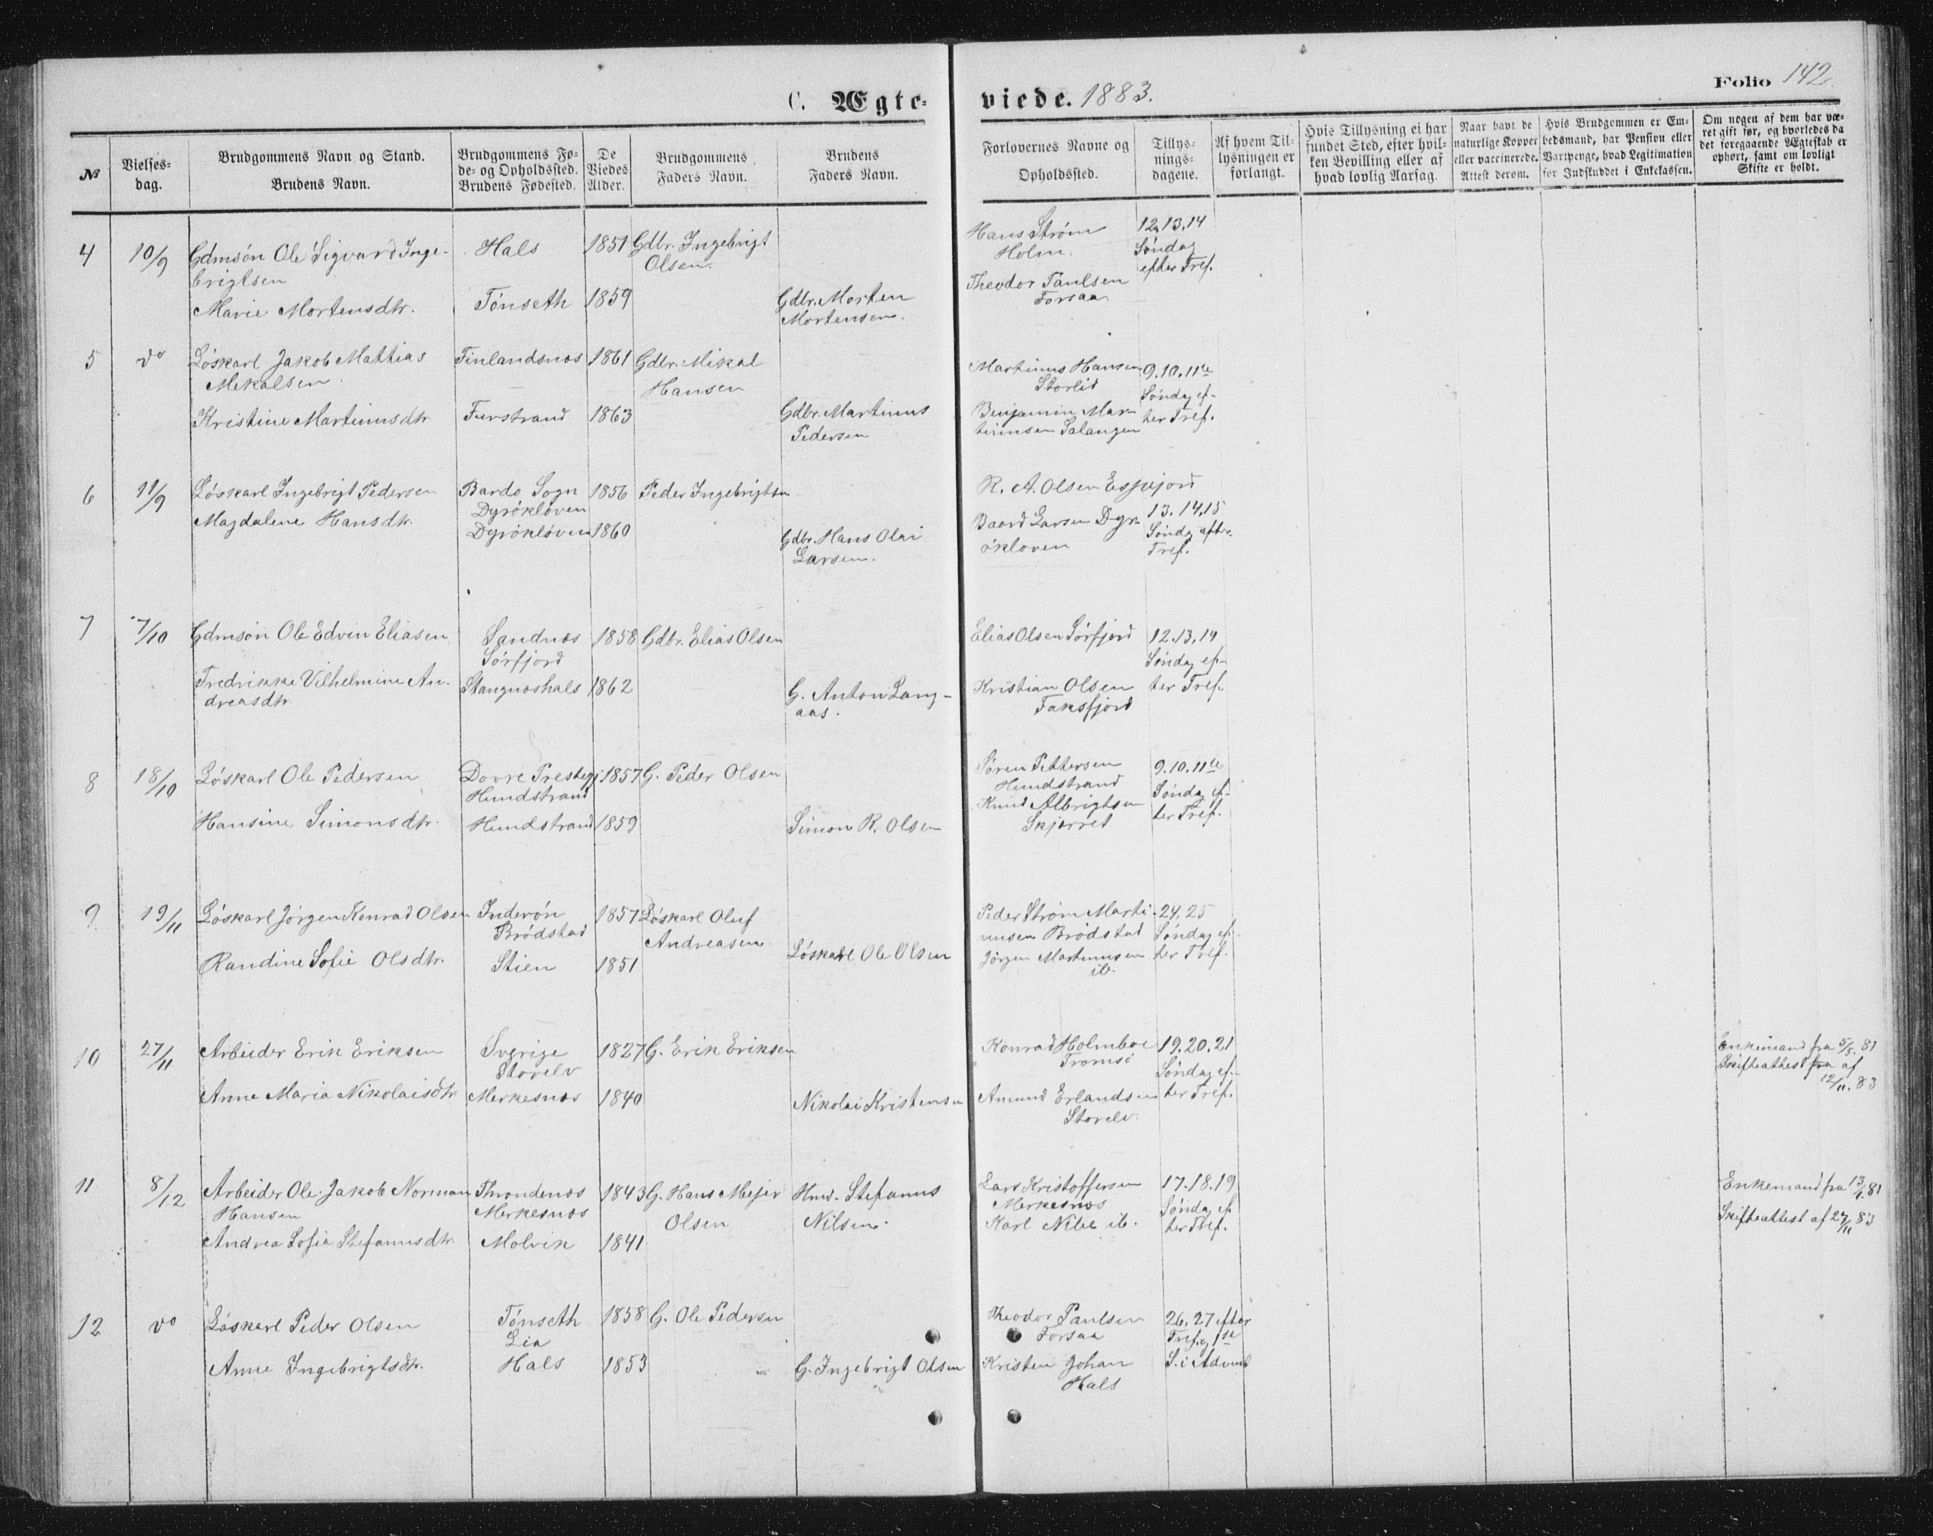 C. Ægte-
viede. 1883.
Folio 142
№
Vielses-
dag.
Brudgommens Navn og Stand.
Brudens Navn.
Brudgommens Fø-
de- og Opholdssted.
Brudens Fødested.
De
Viedes
Alder.
Brudgommens
Faders Navn.
Brudens
Faders Navn.
Forlovernes Navne og
Opholdssted.
Tillys-
nings-
dagene.
Af hvem Til-
lysningen er
forlangt.
Hvis Tillysning ei har
fundet Sted, efter hvil-
ken Bevilling eller af
hvad lovlig Aarsag.
Naar havt de
naturlige Kopper
eller vaccinerede.
Attest derom.
Hvis Brudgommen er Em-
bedsmand, har Pension eller
Vartpenge, hvad Legitimation
for Indskuddet i Enkekassen.
Om nogen af dem har væ-
ret gift før, og hvorledes da
det foregaaende Ægteskab er
ophørt, samt om lovligt
Skifte er holdt.
4
10/9
Gdmsøn Ole Sigvard Inge-
brigtsen
Marie Mortensdtr.
Hals
Tønseth
1851
1859
Gdbr. Ingebrigt
Olsen.
Gdbr. Morten
Mortensen.
Hans Strøm
Holm.
Theodor Paulsen
Forsaa.
12.13.14
Søndag
efter Tref.
5
do
Løskarl Jakob Mattias
Mikalsen.
Kristine Martinusdtr
Finlandsnæs
Furstrand
1861
1863
Gdbr. Mikal
Hansen
Gdbr. Martinus
Pedersen
Martinus Hansen
Storlid
Benjamin Mar-
tinusen Salangen
9.10.11te
Søndag ef-
ter Tref.
6
11/9
Løskarl Ingebrigt Pedersen
Magdalene Hansdtr.
Bardo Sogn
Dyrøkløven
Dyrøkløven
1856
1860
Peder Ingebrigtsn
Gdbr. Hans Olai
Larsen.
R. A. Olsen Espejord
Baard Larsen Dyr-
økloven
13.14.15
Søndag efter
Tref.
7
7/10
Gdmsøn Ole Edvin Eliasen
Fredrikke Vilhelmine An-
dreasdtr.
Sandnæs
Sørfjord
Stangnæshals
1858
1862
Gdbr. Elias Olsen
G. Anton Lang-
aas.
Elias Olsen Sørfjord
Kristian Olsen
Faksfjord
12.13.14
Søndag ef-
ter Tref.
8
18/10
Løskarl Ole Pedersen
Hansine Simonsdtr.
Dovre Prestegj.
Hundstrand
Hundstrand
1857
1859
G. Peder Olsen
Simon R. Olsen
Søren Pettersen
Hundstrand
Knud Albrigtsen
Skjærret
9.10.11te
Søndag ef-
ter Tref.
9.
19/11
Løskarl Jørgen Konrad Olsen
Randine Sofie Olsdtr.
Inderøn
Brødstad
Stien
1857
1851
Løskarl Oluf
Andreasen
Løskarl Ole Olsen
Peder Strøm Marti-
nusen Brødstad
Jørgen Martinusen
ib.
24.25
Søndag ef-
ter Tref.
10
27/11
Arbeider Erik Eriksen
Anne Maria Nikolaisdtr.
Sverige
Storelv
Merkesnæs
1827
1840
G. Erik Eriksen
Nikolai Kristensn
Konrad Holmboe
Tromsø
Amund Erlandsen
Storelv.
19.20.21
Søndag ef-
ter Tref.
Enkemand fra 5/5.81
Skifteattest fra af
12/11.83
11
8/12
Arbeider Ole Jakob Norman
Hansen
Andrea Sofia Stefanusdtr.
Throndenæs
Merkesnæs
Molvik
1843
1841
G. Hans Mejer
Olsen
Hmd. Stefanus
Nilsen.
Lars Kristoffersen
Merkesnæs
Karl Nibe ib.
17.18.19
Søndag ef
ter Tref.
Enkemand fra 13/4.81
Skifteattest af 27/11 83
12
do
Løskarl Peder Olsen
Anne Ingebrigtsdtr.
Tønseth
Lia
Hals
1858
1853
G. Ole Pedersen
G. Ingebrigt Olsen
Theodor Paulsen
Forsaa
Kristen Johan
Hals
26.27 efter
Tref. og 1ste
S. i Advent